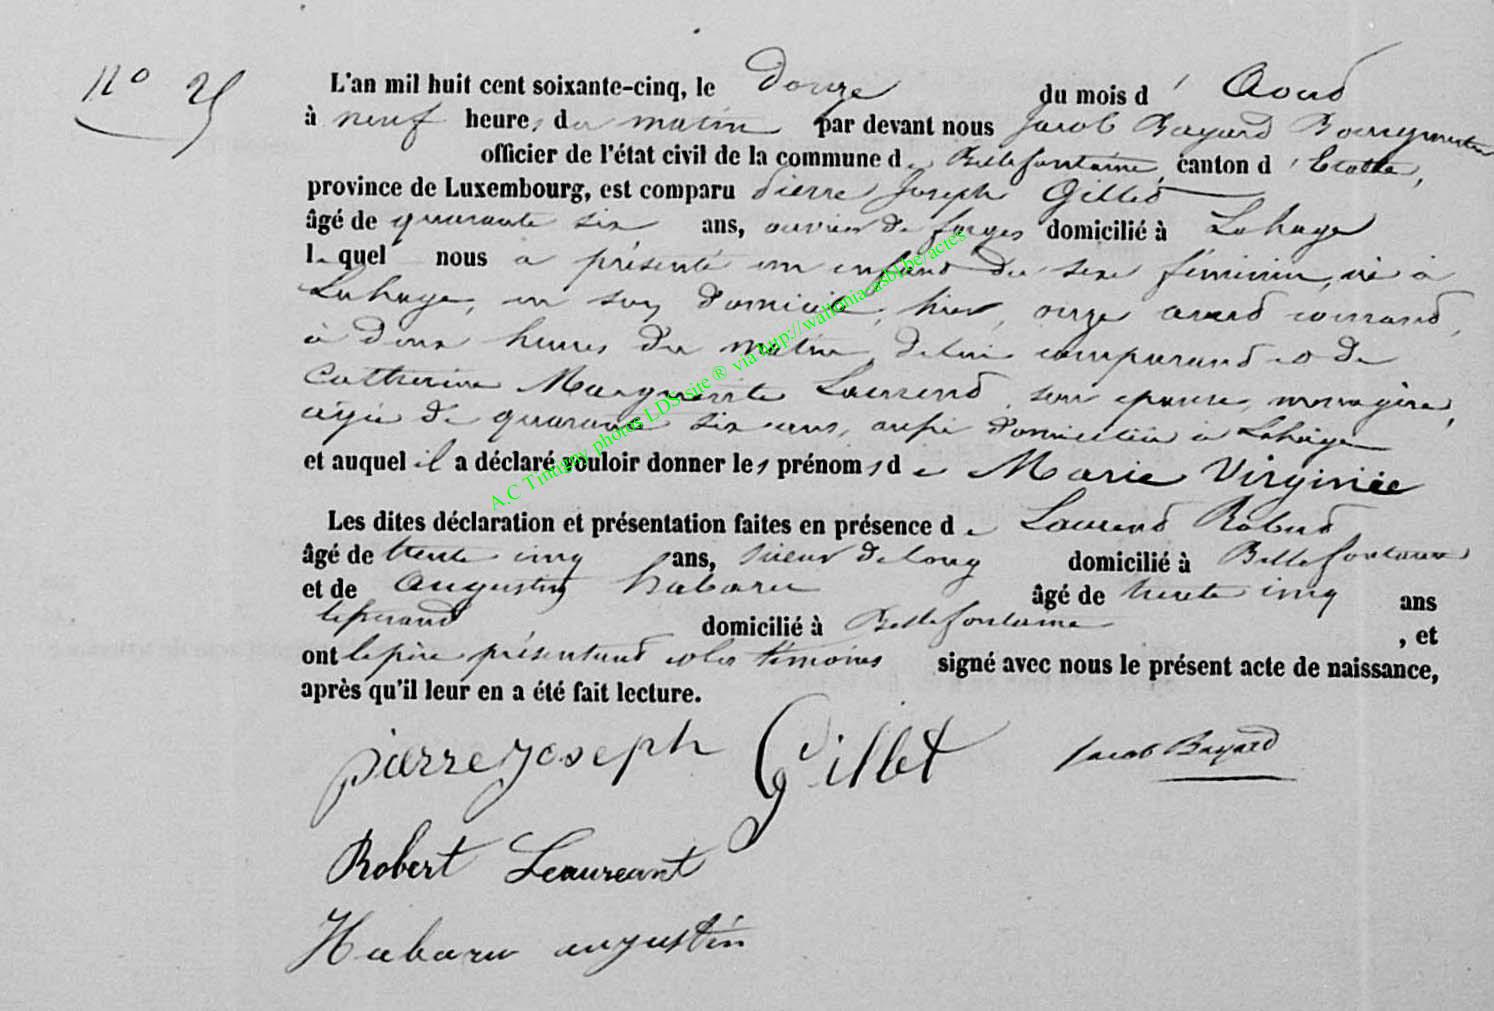 No 25
L'an mil huit cent soixante-cinq, le Douze du mois d' Aout
à neuf heures du matin par devant nous Jacob Bayard Bourgmestre
officier de l'état civil de la commune de Bellefontaine, canton d' Etalle,
province de Luxembourg, est comparu Pierre Joseph Gillet
âgé de quarante six ans, ouvrier de forges domicilié à Lahage
lequel nous a présenté un enfant du sexe féminin, né à
Lahage, en son domicile, hier, onze aout courant,
à deux heures du matin, de lui comparant et de
Catherine Marguerite Laurent, son epouse, menagère,
agée de quarante six ans, aussi domiciliée à Lahage
et auquel il a déclaré vouloir donner les prénoms de Marie Virginiee
Les dites déclaration et présentation faites en présence de Laurent Robert
âgé de trente cinq ans, sieur de long domicilié à Bellefontaine
et de Augustin habaru âgé de trente cinq ans
domicilié à Bellefontaine, et
ont le père présentant et les témoins signé avec nous le présent acte de naissance,
après qu'il leur en a été fait lecture.
piarre joseph Gillet Jacob Bayard
Robert Leaureant
Habaru augustin
A.C Tintigny photos LDS site ® via http://wallonia-asbl.be/actes